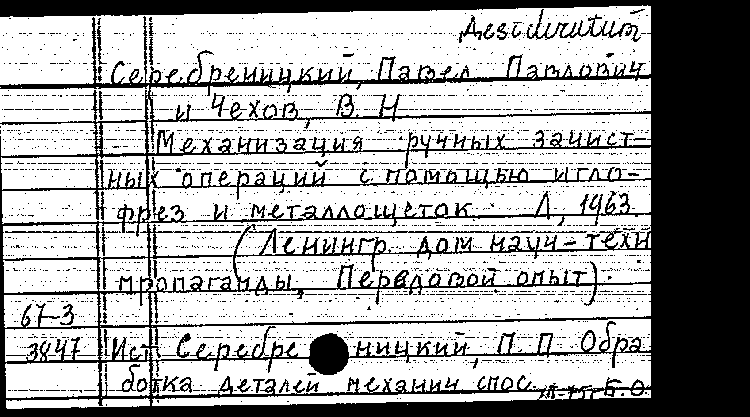 Desideratum
Серебреницкий, Павел Павлович
и Чехов, В. Н.
Механизация ручных зачист-
ных операций с помощью игло-
фрез и металлощеток. Л, 1963.
(Ленингр. дом науч-техн
пропаганды, Передовой опыт).
67-3
3847 Ист. Серебреницкий, П. П. Обра
ботка деталей механич спос.